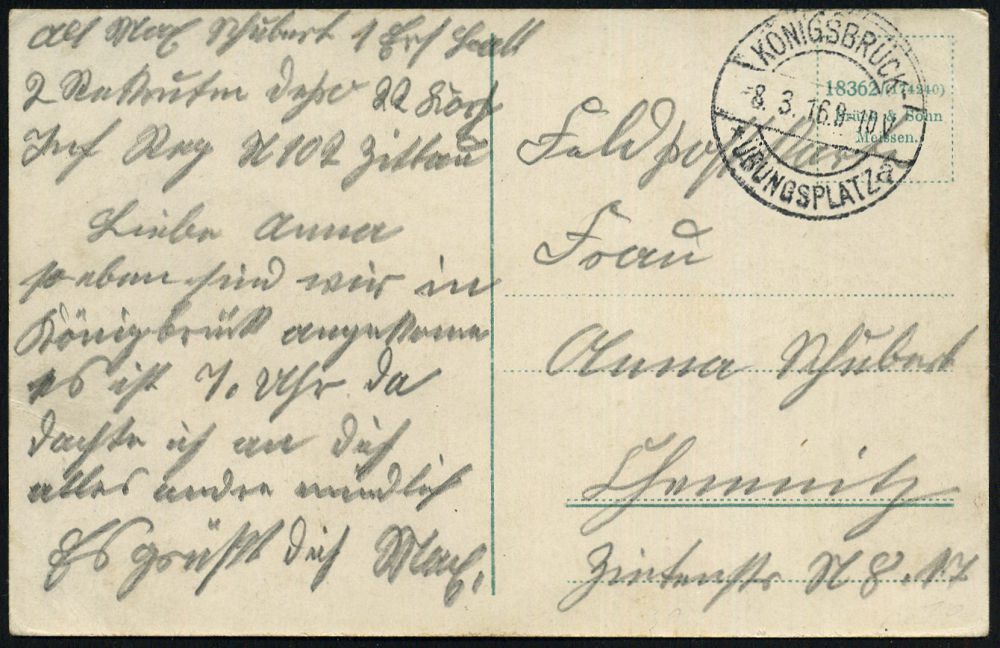 Abs Max Schubert 1 Ers Batl
2 Rekruten Depo 22 Korp
Inf Reg N 102 Zittau
Liebe Anna
soeben sind wir in
Königbrück angekome
es ist 7. Uhr da
dachte ich an Dich
alles andre mündlich
Es grüßt Dich Max.
KÖNIGSBRÜCK
8.3.16.8-10V
ÜBUNGSPLATZ a
18362 (174240)
Brück & Sohn
Meissen.
Feldpostkarte
Frau
Anna Schubert
Chemnitz
Zietenstr N 8.